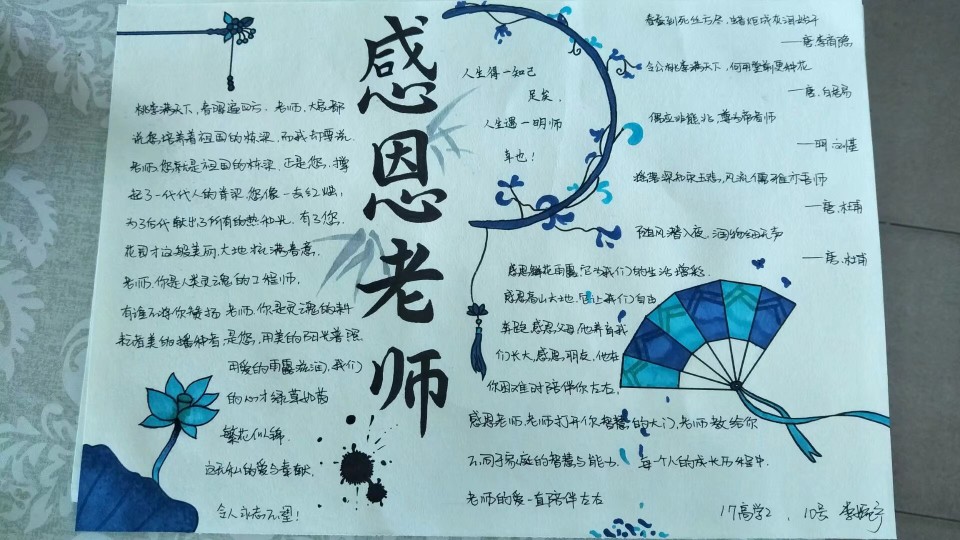 感恩老师
桃李满天下,春晖遍四方。老师,大家都
说您培养着祖国的栋梁,而我却要说,
老师您就是祖国的栋梁,正是您,撑
起了一代代人的脊梁,您像一支红烛,
为了后代献出了所有的热和光,有了您,
花园才这般美丽,大地充满春意,
老师,你是人类灵魂的工程师,
有谁不将你赞扬 老师,你是灵魂的耕
耘者美的播种者,是您,用美的阳光普照
用爱的雨露滋润,我们
的心才绿草如茵
繁花似锦
这无私的爱与奉献,
令人永志不望!
人生得一知己
足矣,
人生遇一明师
幸也!
春蚕到死丝方尽,蜡炬成灰泪始干
——唐.李商隐
令公桃李满天下,何用堂前更种花
——唐.白居易
尊为帝者师
——明 刘基
风流儒雅亦吾师
——唐.杜甫
随风潜入夜,润物细无声
——唐.杜甫
感恩鲜花雨露,它为我们的生活增彩,
感恩高山大地,它让我们自由
奔跑,感恩父母,他养育我
们长大,感恩朋友,他在
你困难时陪伴你左右,
感恩老师,老师打开你智慧的大门,老师教给你
不同于家庭的智慧与能力. 每一个人的成长历程中.
老师的爱一直陪伴左右
17高学2 , 10号 李